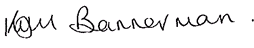 KGM Bannerman.